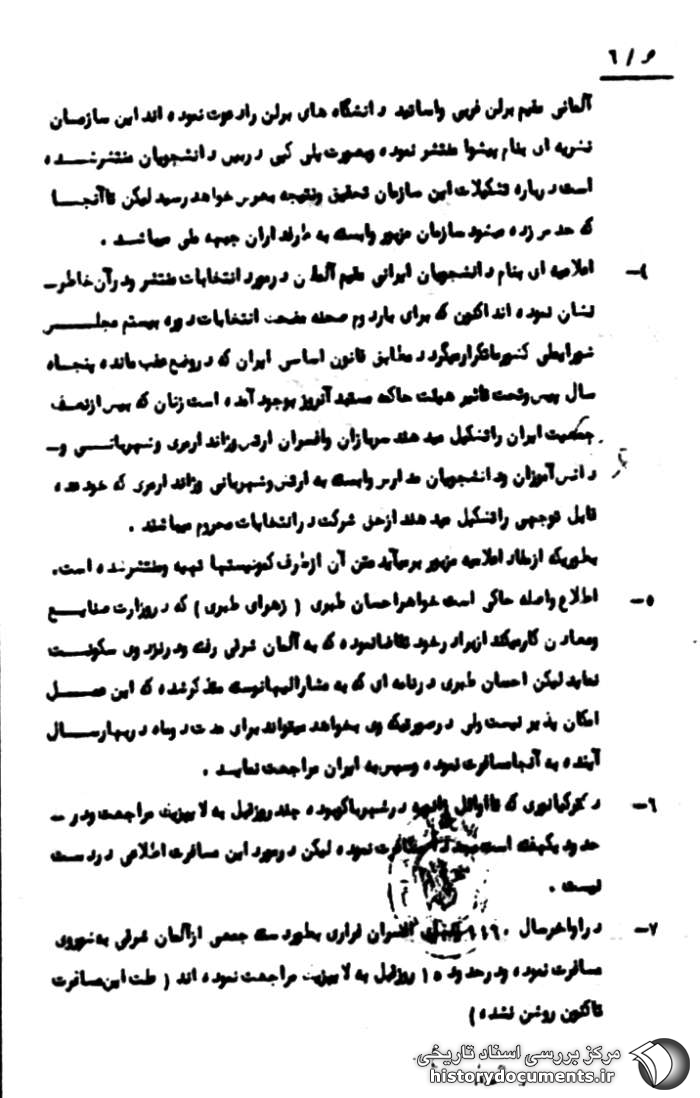 و / ٦
آلمانی مقیم برلن غربی واساتید دانشگاه های برلن رادعوت نموده اند این سازمان
نشریه ای بنام پیشوا منتشر نموده وبصورت پلی کپی دربین دانشجویان منتشرشده
است درباره تشکیلات این سازمان تحقیق ونتیجه بعرض خواهد رسید لیکن تاآنجا
که حدس زده میشود سازمان مزبور وابسته به طرفداران جبهه ملی میباشد .
٤- اعلامیه ای بنام دانشجویان ایرانی مقیم آلمان درمورد انتخابات منتشر ودرآن خاطر-
نشان نموده اند اکنون که برای باردوم صحنه انتخابات دوره بیستم مجلس
شورایملی کشورماتکرارمیگردد مطابق قانون اساسی ایران که دروضع عقب مانده پنجاه
سال پیش وتحت تاثیر هیئت حاکمه مستبد آنروز بوجود آمده است زنان که بیش ازنصف
جمعیت ایران راتشکیل میدهند سربازان وافسران ارتش وژاندارمری وشهربانی و-
دانش آموزان ودانشجویان مدارس وابسته به ارتش وشهربانی وژاندارمری که خود عده
قابل توجهی راتشکیل میدهند ازحق شرکت درانتخابات محروم میباشند .
بطوریکه ازمفاد اعلامیه مزبور برمیآید متن آن ازطرف کمونیستها تهیه ومنتشرشده است.
٥- اطلاع واصله حاکی است خواهراحسان طبری ( زهرای طبری ) که دروزارت صنایع
ومعادن کارمیکند ازبرادرخود تقاضانموده که به آلمان شرقی رفته ودرنزد وی سکونت
نماید لیکن احسان طبری درنامه ای که به مشارالیهانوشته متذکرشده که این عمل
امکان پذیر نیست ولی درصورتیکه وی بخواهد میتواند برای مدت دوماه دربهارسال
آینده به آنجامسافرت نموده وسپس به ایران مراجعت نماید .
٦- دکترکیانوری که تااوائل ژانویه درشهرباکوبوده چند روزقبل به لایپزیک مراجعت ودر-
حدود یکهفته است مجددا مسافرت نموده لیکن درمورد این مسافرت اطلاعی دردست
نیست .
٧- دراواخرسال ١٩٦٠ افسران فراری بطوردسته جمعی ازآلمان شرقی به شوروی
مسافرت نموده ودرحدود ١٥ روزقبل به لایپزیک مراجعت نموده اند ( علت این مسافرت
تاکنون روشن نشده )
مرکز بررسی اسناد تاریخی
historydocuments.ir